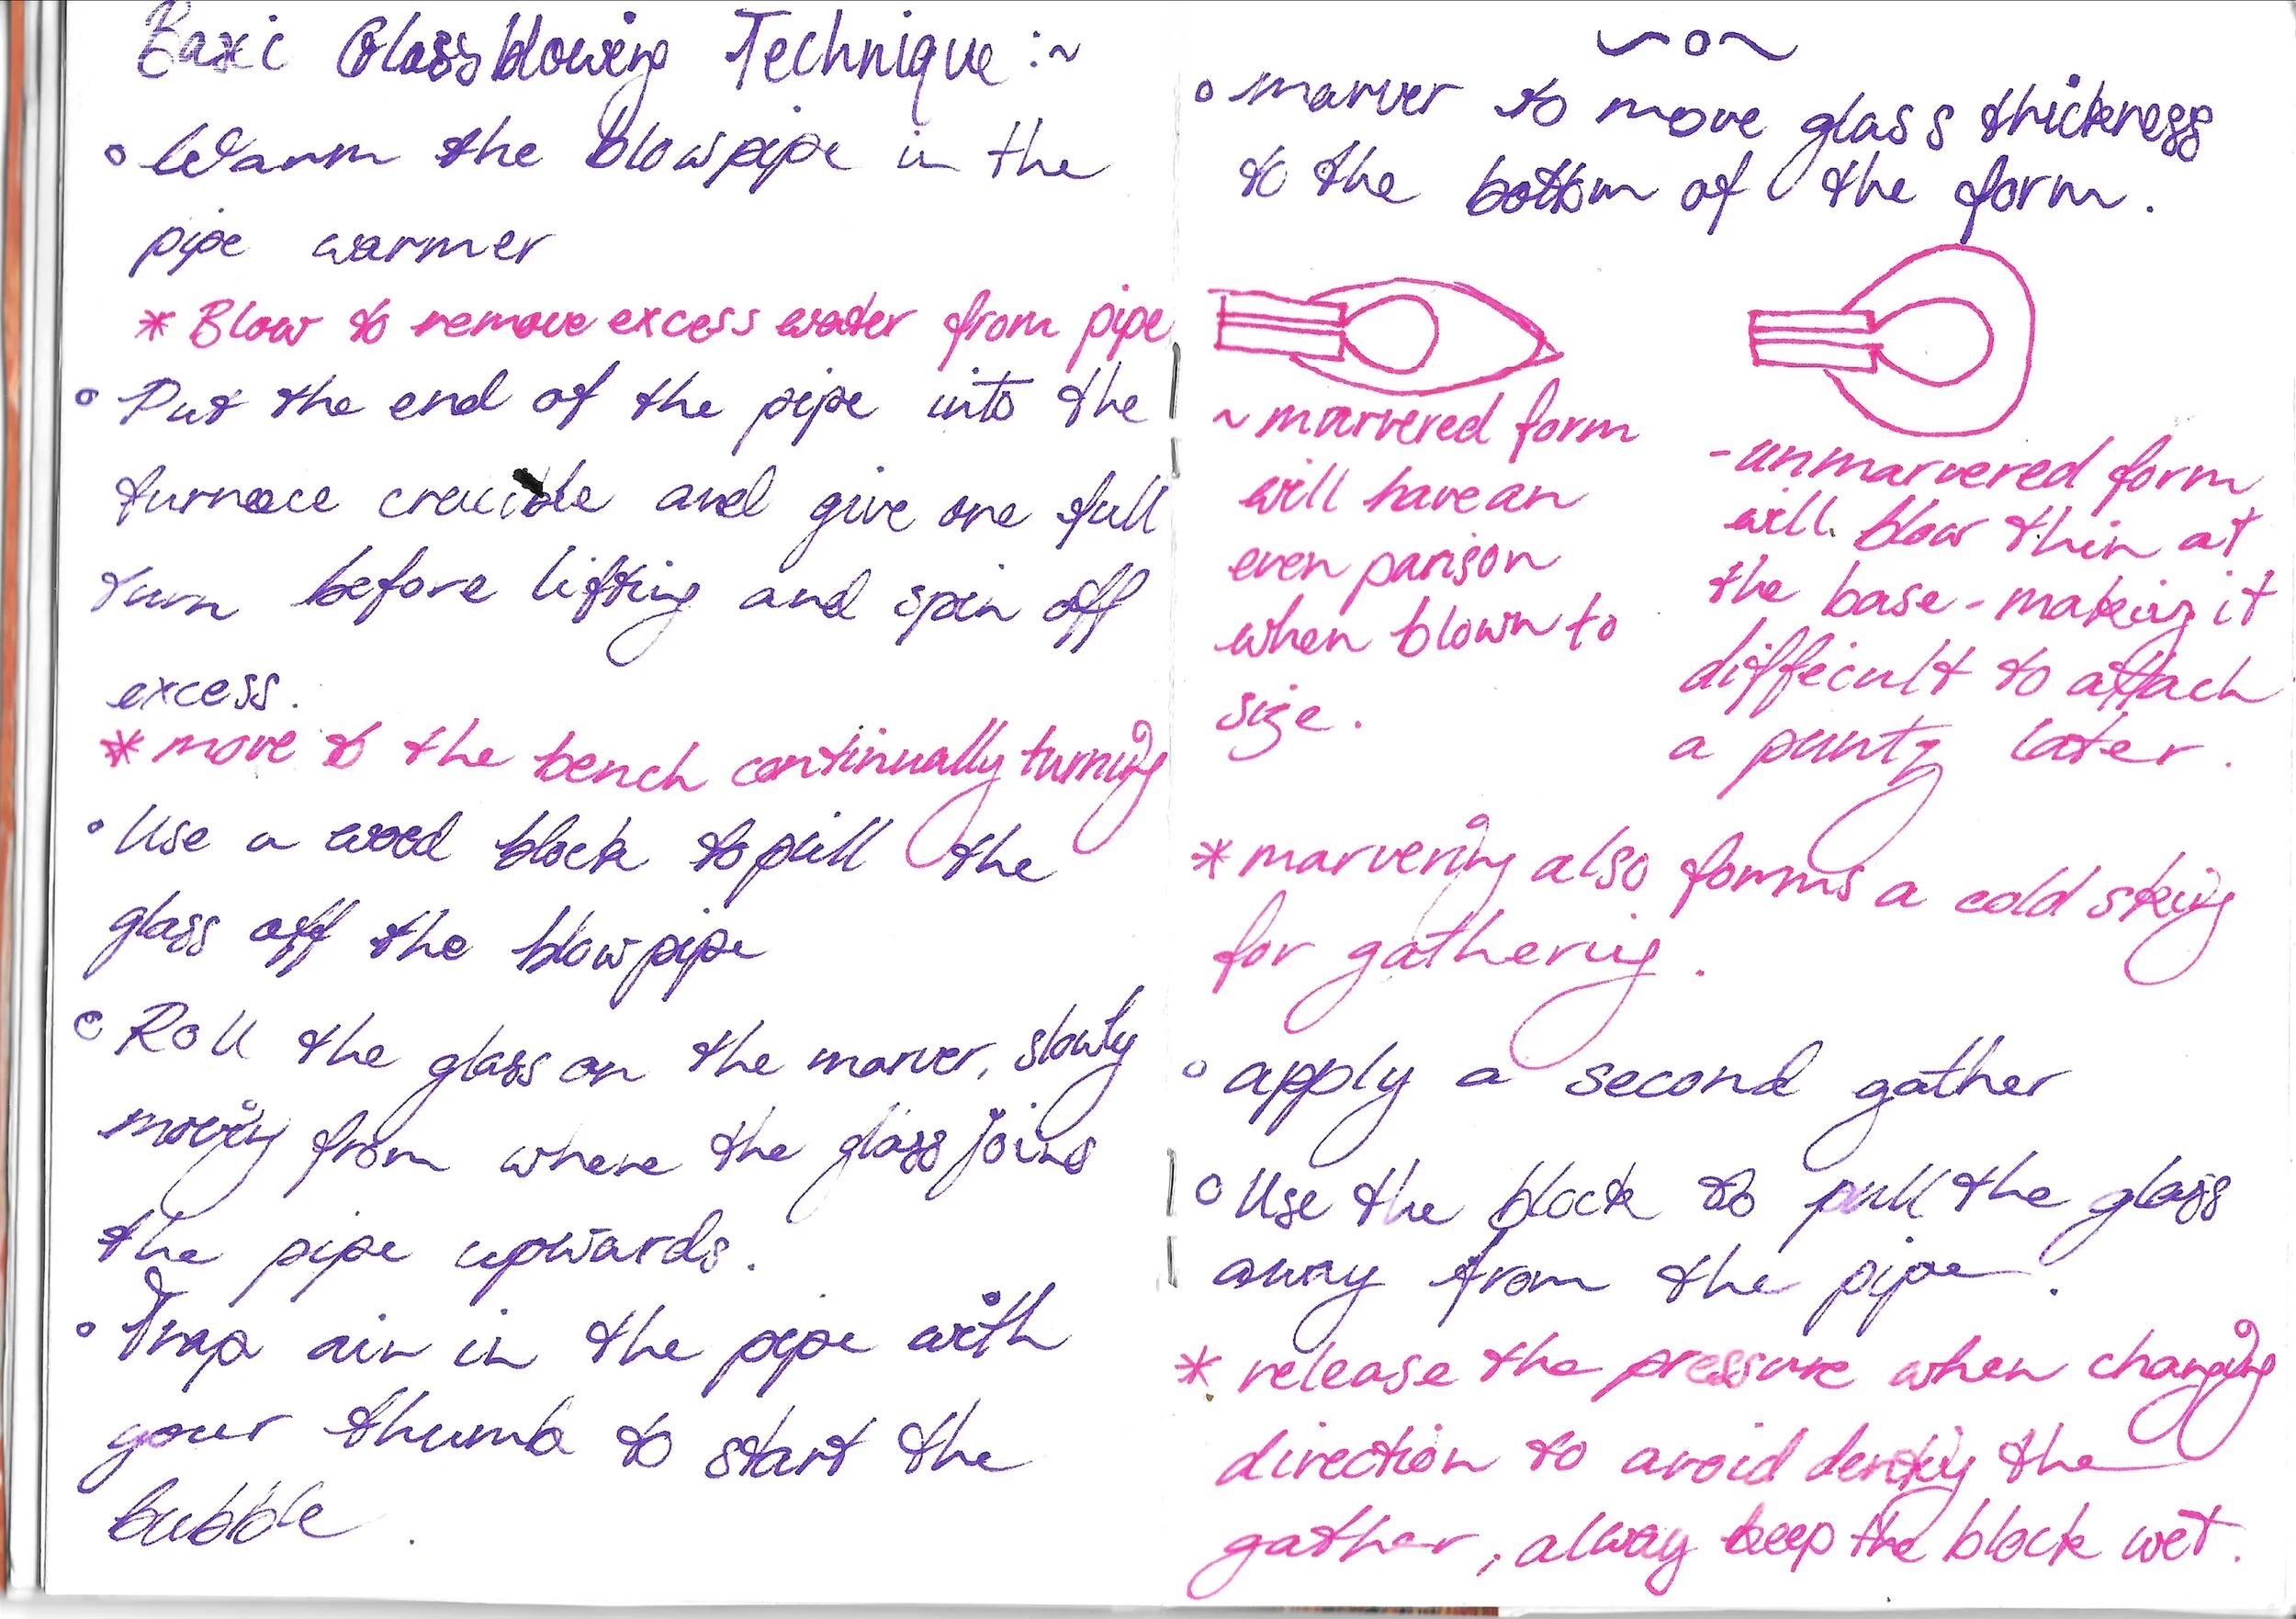 Basic Glassblowing Technique :~
◦ Warm the blowpipe in the
pipe warmer
* Blow to remove excess water from pipe
◦ Put the end of the pipe into the
furnace crucible and give one full
turn before lifting and spin off
excess.
* move to the bench continually turning
◦ Use a wood block to pull the
glass off the blowpipe
◦ Roll the glass on the marver, slowly
moving from where the glass joins
the pipe upwards.
◦ Trap air in the pipe with
your thumb to start the
bubble.
◦ marver to move glass thickness
to the bottom of the form.
~ marvered form
will have an
even parison
when blown to
size.
- unmarvered form
will blow thin at
the base - making it
difficult to attach
a punty later.
* marvering also forms a cold sking
for gathering.
◦ apply a second gather
◦ Use the block to pull the glass
away from the pipe.
* release the pressure when changing
direction to avoid denting the
gather, alway keep the block wet.